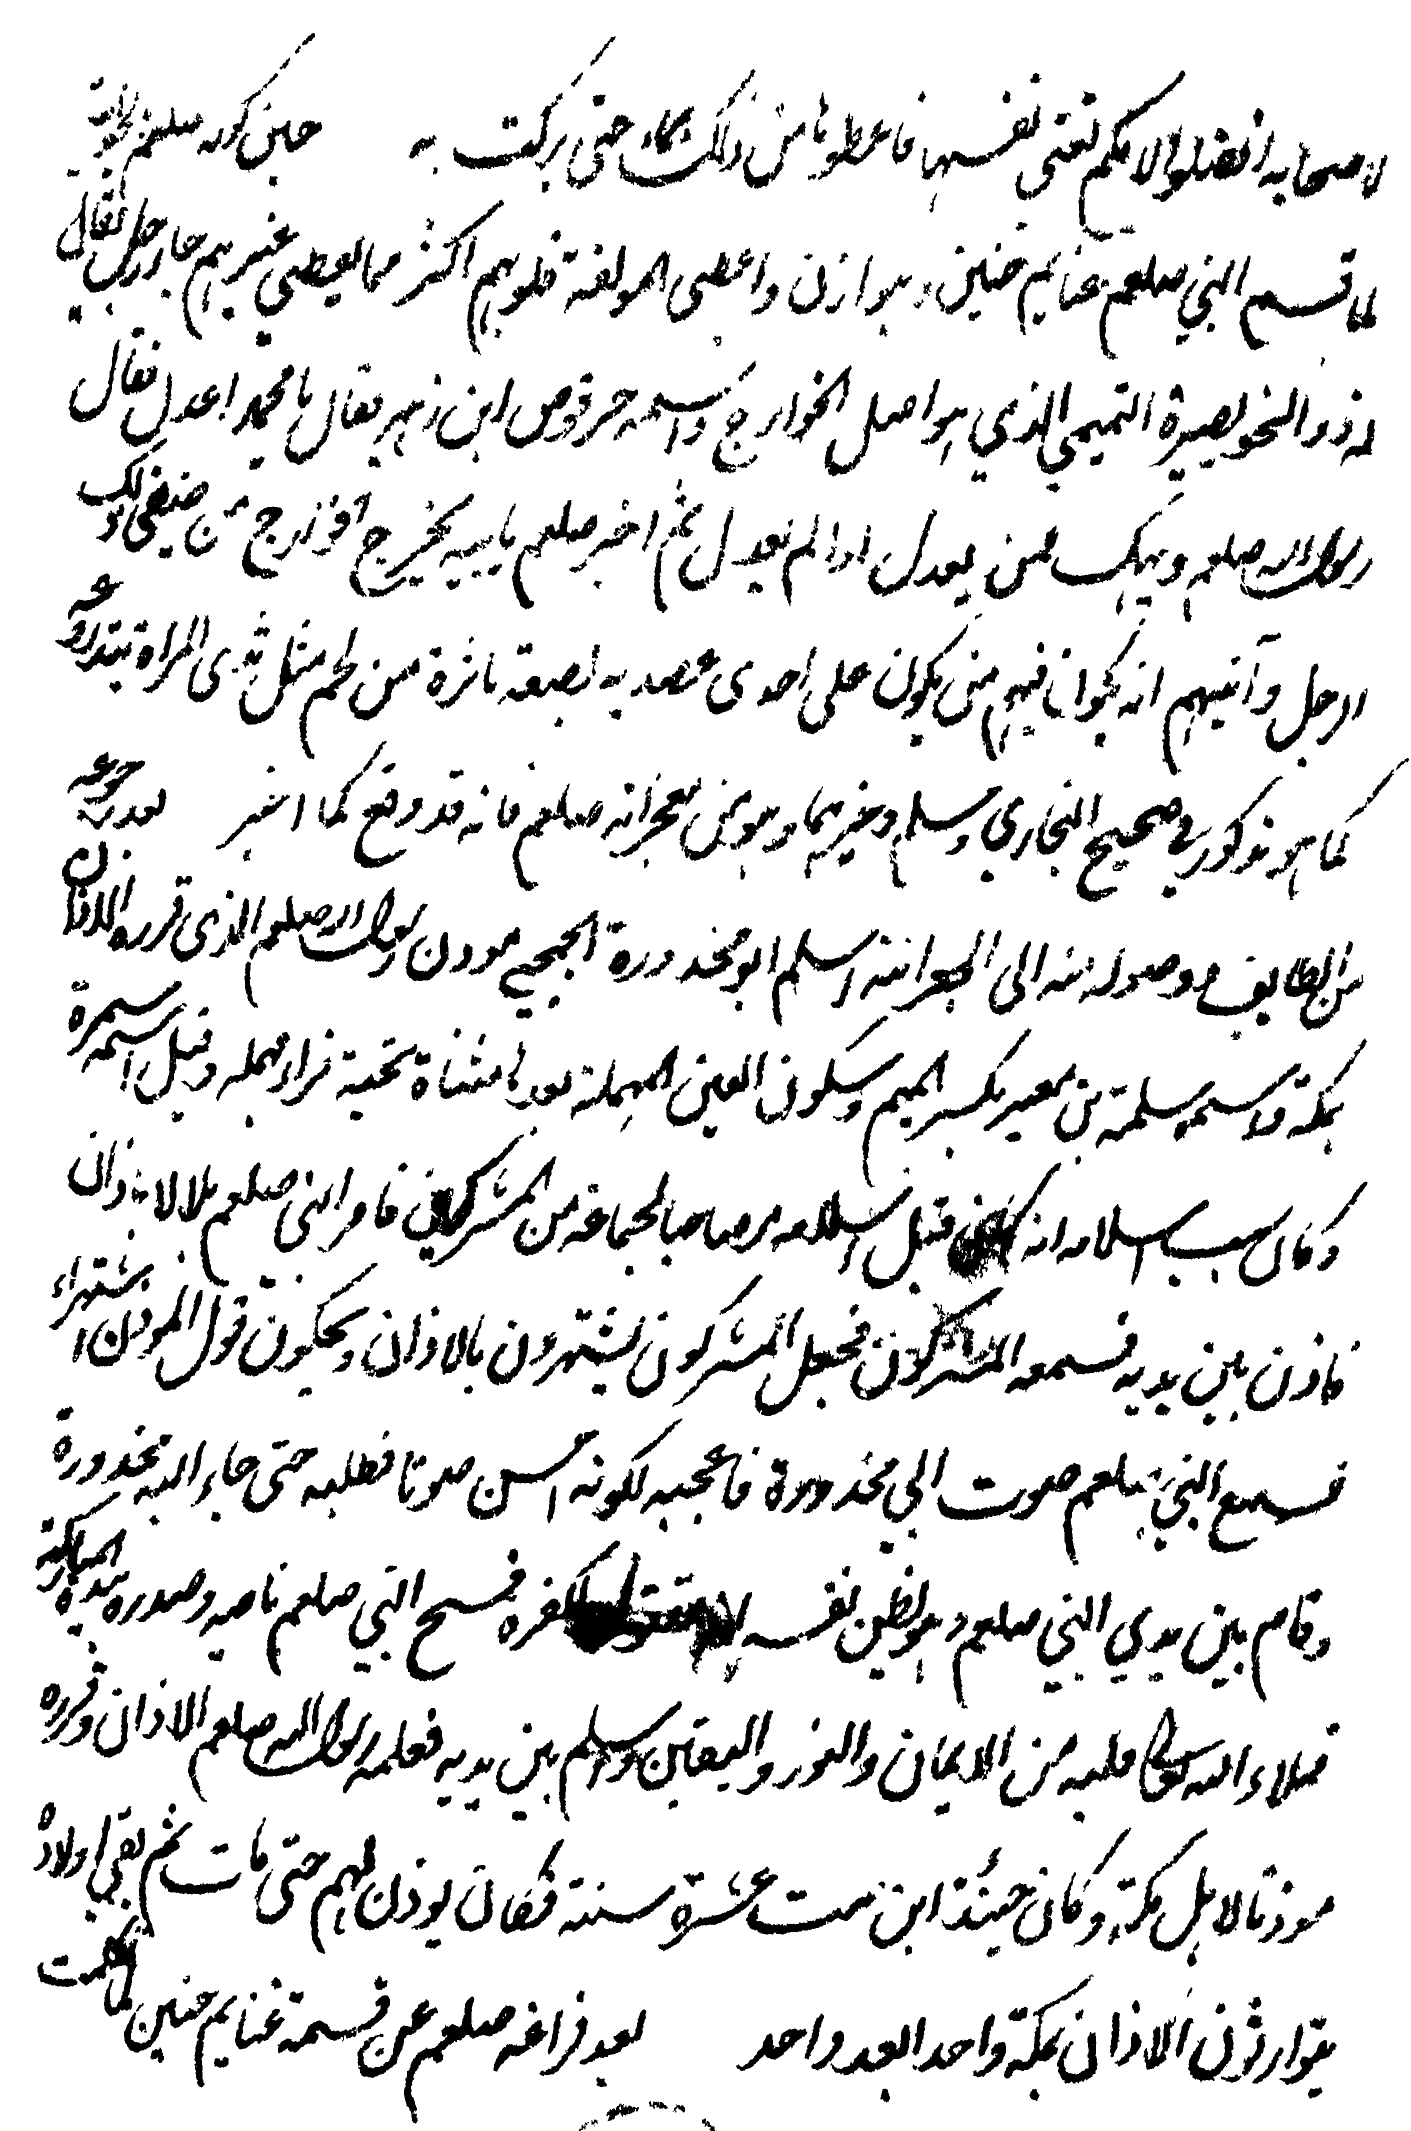 لاصحابه افضلوا لامكم تعني نفسها فاعطوها من ذلك حتى بركت به حين كونه صلعم
لما قسم النبي صلعم غنايم حنين وهوازن واعطى المولفة قلوبهم اكثر مما يعطي غيرهم جاء رجل يقال
له ذو الخويصرة التميمي الذي هو اصل الخوارج واسمه حرقوص ابن زهير فقال يا محمد اعدل فقال
رسول الله صلعم ويلك فمن يعدل اذا لم يعدل ثم اخبر صلعم بانه يخرج من ضئضئ ذلك
الرجل وآنبيهم انه فيهم من يكون على احدى عضديه بضعة ناشزة من لحم مثل ثدى المراة
كما هو مذكور في صحيح البخاري ومسلم وغيرهما وهو من معجزاته صلعم فانه قد وقع كما اخبر بعد رجوعه
من الطايف ووصوله منه الى الجعرانة اسلم ابو محذورة الجمحي موذن رسول الله صلعم الذى قرره للاذان
بمكة واسمه سلمة بن معير بكسر الميم وسكون العين المهملة بعدها مثناة تحتية فراء مهمله وقيل اسمه سمرة
وكان سبب اسلامه انه كان قبل اسلامه مر صاحبا لجماعة من المشركين فامر النبى صلعم بلالا باذان
فاذن بين يديه فسمعه المشركون فجعل المشركون يستهزون بالاذان ويحكون قول الموذن استهزاء
فسمع النبي صلعم صوت ابي محذورة فاعجبه لكونه احسن صوتا فطلبه حتى جاء ابو محذورة
وقام بين يدي النبي صلعم وهو يظن نفسه لكفره فمسح النبي صلعم ناصيه وصدره بيده المباركة
فملاء الله قلبه من الايمان والنور واليقين واسلم بين يديه فعلمه رسول الله صلعم الاذان وقرره
موذنا لاهل مكة وكان حينئذ ابن ست عشرة سنة فكان يوذن لهم حتى مات ثم بقي اولاده
يتوارثون الاذان بمكة واحدا بعد واحد بعد فراغه صلعم عن قسمة غنايم حنين